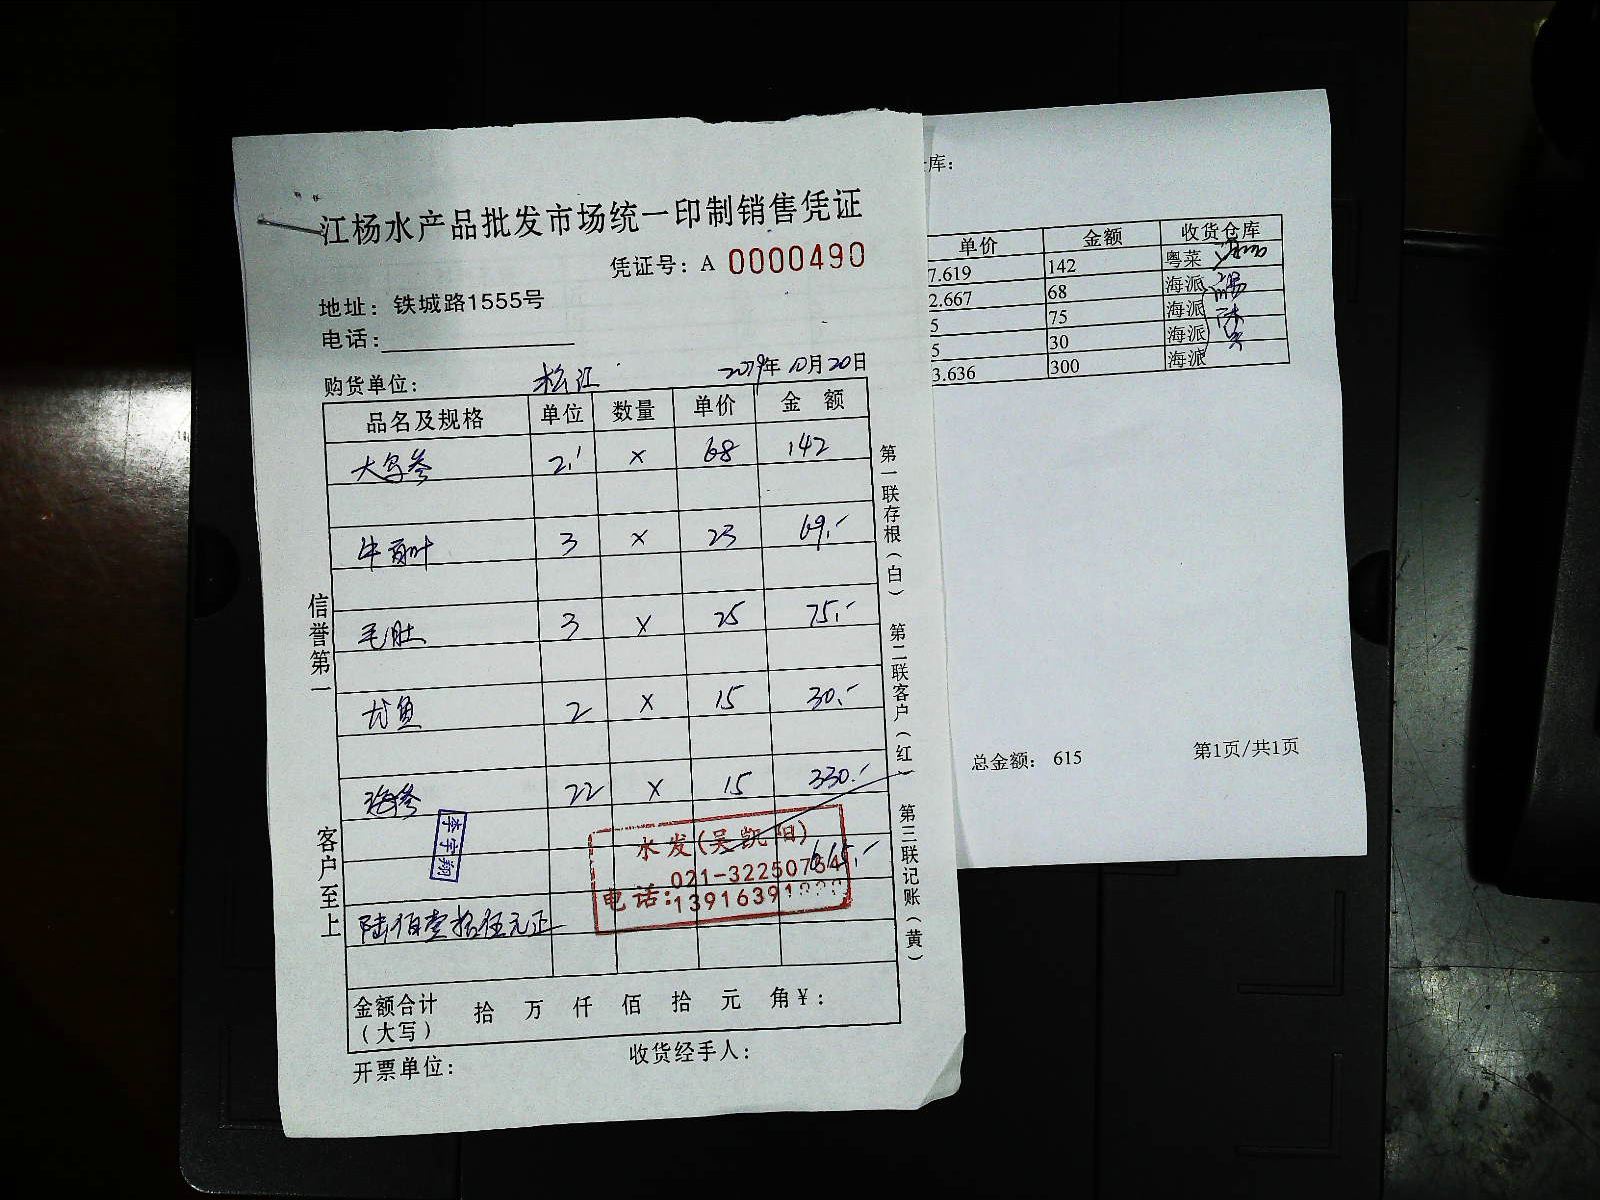 江杨水产品批发市场统一印制销售凭证
凭证号：A 0000490
地址：铁城路1555号
电话：
购货单位： 松江 2019年10月20日
品名及规格 单位 数量 单价 金 额
大乌参 2.1 x 68 142
牛百叶 3 x 23 69.-
毛肚 3 x 25 75.-
尤鱼 2 x 15 30.-
海参 22 x 15 330.-
李宇翔
水发(吴凯旧)
615.-
021-32250754
电话:
陆佰壹拾伍元正
金额合计
（大写）
拾 万 仟 佰 拾 元 角￥：
开票单位：
收货经手人：
信誉第一
客户至上
第一联存根（白）
第二联客户（红）
第三联记账（黄）
库：
单价 金额 收货仓库
7.619 142 粤菜
2.667 68 海派
5 75 海派
5 30 海派
3.636 300 海派
总金额： 615
第1页/共1页